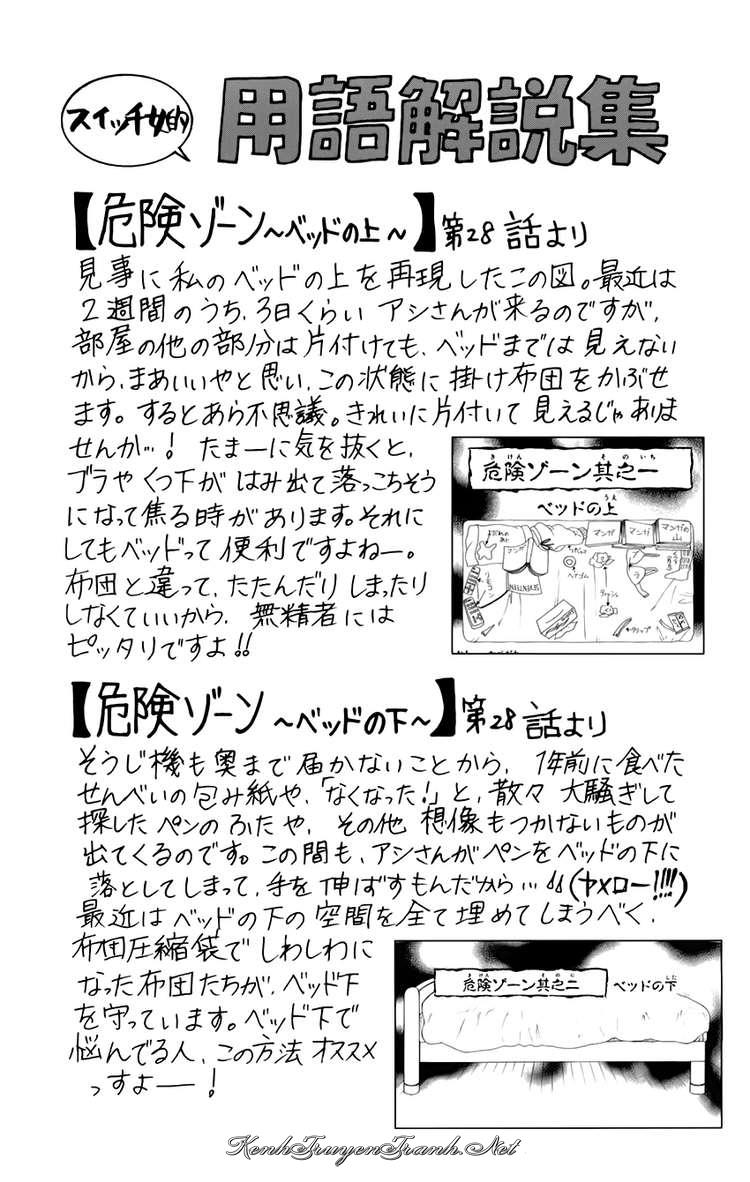 スイッチ女的
用語解説集
【危険ゾーン〜ベッドの上〜】第28話より
見事に私のベッドの上を再現したこの図。最近は
2週間のうち、3日くらいアシさんが来るのですが、
部屋の他の部分は片付けても、ベッドまでは見えない
から、まあいいやと思い、この状態に掛け布団をかぶせ
ます。するとあら不思議。きれいに片付いて見えるじゃありま
せんか…！たまーに気を抜くと、
ブラやくつ下がはみ出て落っこちそう
になって焦る時があります。それに
してもベッドって便利ですよねー。
布団と違って、たたんだりしまったり
しなくていいから、無精者には
ピッタリですよ!!
きけん そのいち
危険ゾーン其之一
うえ
ベッドの上
マンガ
マンガ
マンガ
マンガの山
ヘアゴム
SEVENTEEN
クリップ
【危険ゾーン〜ベッドの下〜】第28話より
そうじ機も奥まで届かないことから、1年前に食べた
せんべいの包み紙や、「なくなった!」と、散々大騒ぎして
探したペンのふたや、その他想像もつかないものが
出てくるのです。この間も、アシさんがペンをベッドの下に
落としてしまって、手を伸ばすもんだから…(ヤメロー!!!!)
最近はベッドの下の空間を全て埋めてしまうべく、
布団圧縮袋でしわしわに
なった布団たちが、ベッド下
を守っています。ベッド下で
悩んでる人、この方法オススメ
っすよー！
きけん そのに
危険ゾーン其之二
した
ベッドの下
KenhTruyenTranh.Net